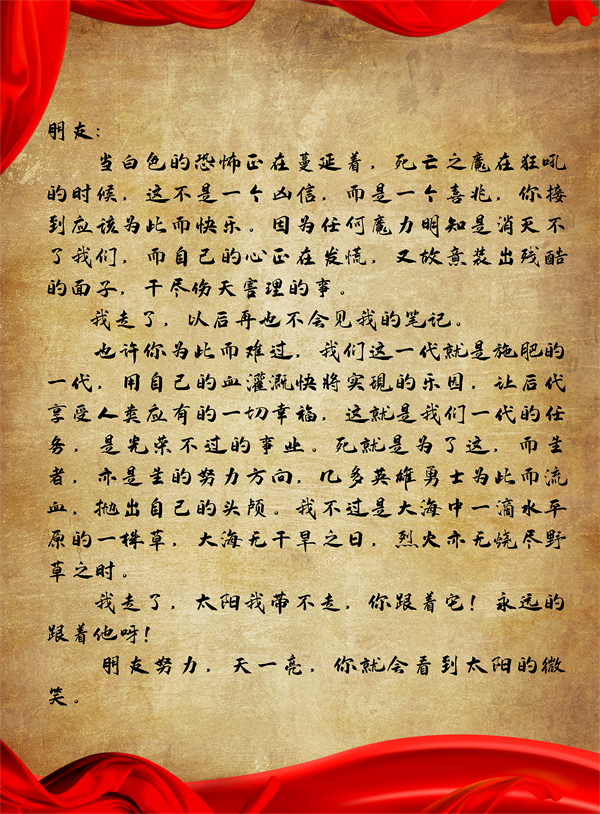 朋友：
当白色的恐怖正在蔓延着，死亡之魔在狂吼
的时候，这不是一个凶信，而是一个喜兆，你接
到应该为此而快乐。因为任何魔力明知是消灭不
了我们，而自己的心正在发慌，又故意装出残酷
的面子，干尽伤天害理的事。
我走了，以后再也不会见我的笔记。
也许你为此而难过，我们这一代就是施肥的
一代，用自己的血灌溉快将实现的乐园，让后代
享受人类应有的一切幸福，这就是我们一代的任
务，是光荣不过的事业。死就是为了这，而生
者，亦是生的努力方向，几多英雄勇士为此而流
血，抛出自己的头颅。我不过是大海中一滴水平
原的一株草，大海无干旱之日，烈火亦无烧尽野
草之时。
我走了，太阳我带不走，你跟着它！永远的
跟着他呀！
朋友努力，天一亮，你就会看到太阳的微
笑。